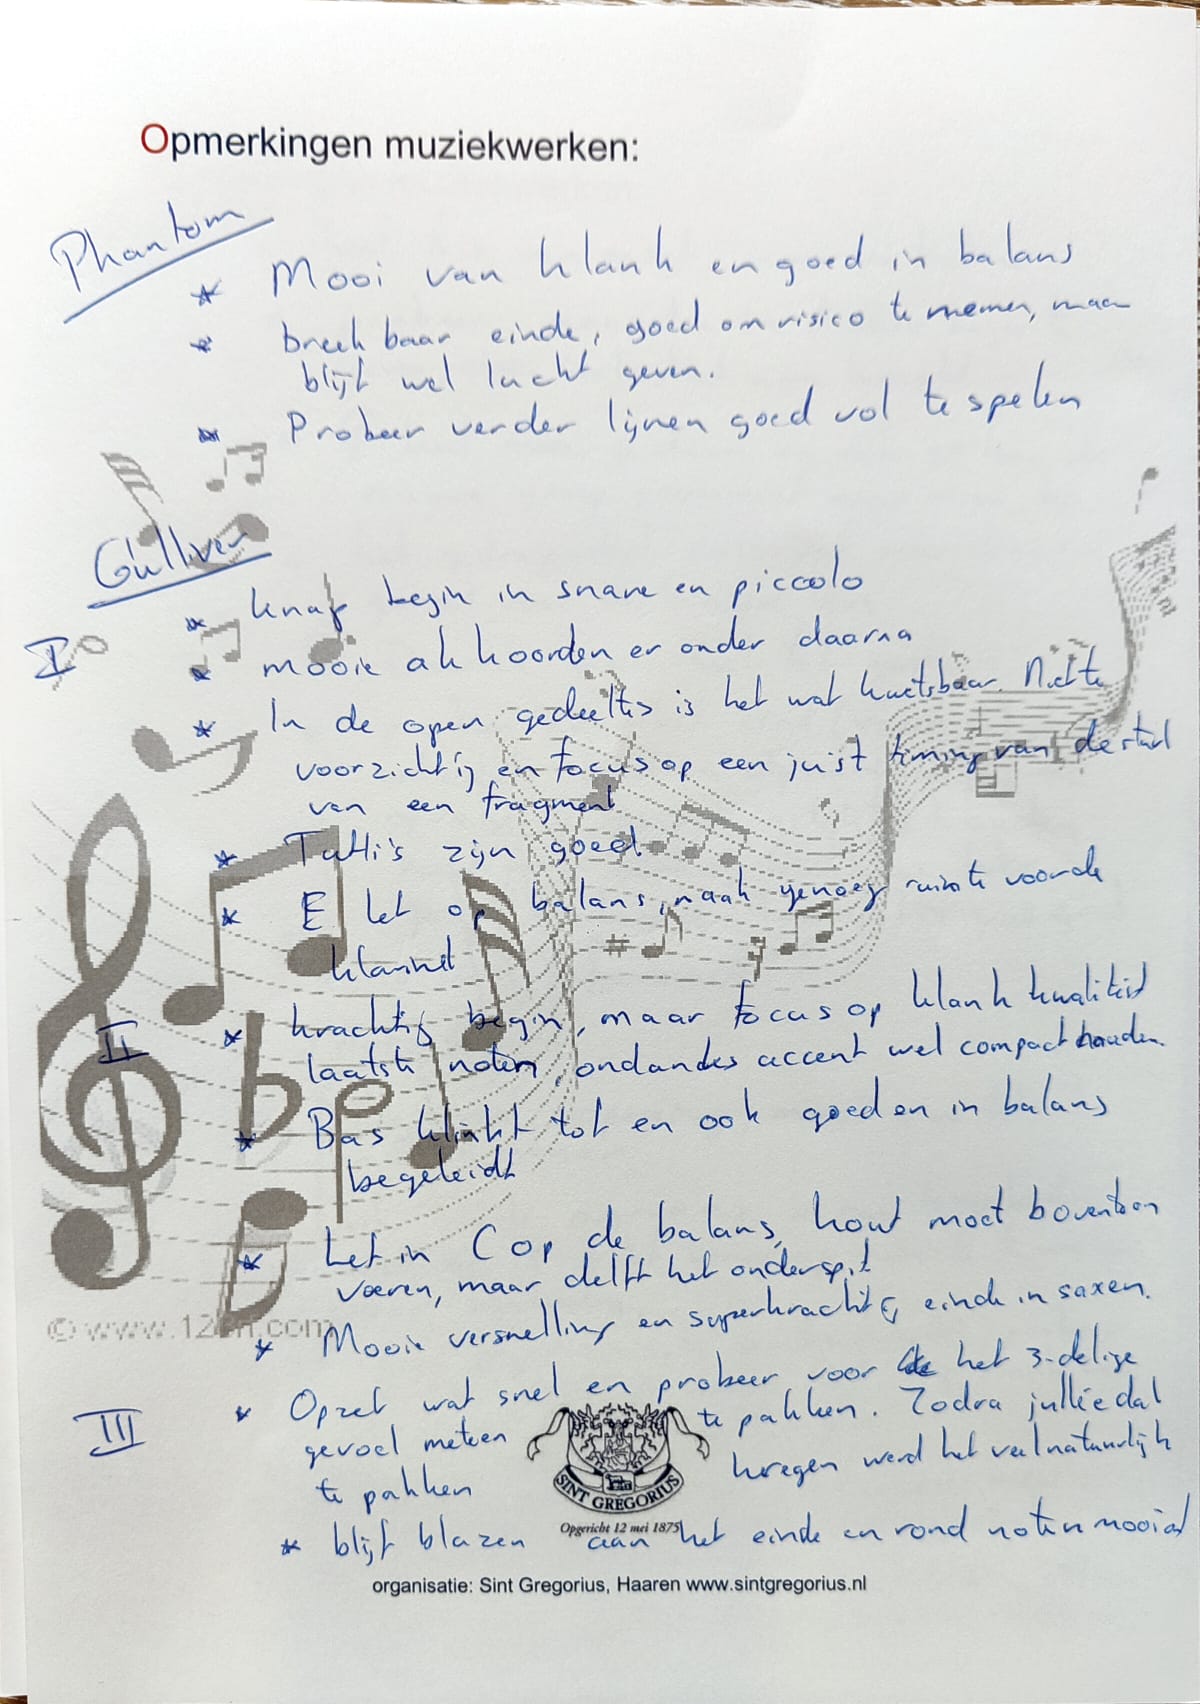 Opmerkingen muziekwerken:
Phantom
* Mooi van klank en goed in balans
* breekbaar einde, goed om risico te nemen, maar
blijf wel lucht geven.
* Probeer verder lijnen goed vol te spelen
Gulliver
I
* knap begin in snare en piccolo
* mooie akkoorden er onder daarna
* In de open gedeeltes is het wat kwetsbaar. Niet te
voorzichtig en focus op een juist timing van de start
van een fragment
* Tutti's zijn goed
* E let op balans, maak genoeg ruimte voor de
klarinet
II
* krachtig begin, maar focus op klank kwaliteit
laatste noten, ondanks accent wel compact houden.
* Bas klinkt tof en ook goed en in balans
begeleidt
* Let in C op de balans, hout moet boventoon
voeren, maar delft het onderspit
* Mooie versnelling en superkrachtig einde in saxen.
III
* Opzet wat snel en probeer voor het 3-delige
gevoel meteen te pakken. Zodra jullie dat
te pakken kregen werd het veel natuurlijk
* blijf blazen aan het einde en rond noten mooi af
© www.123rf.com
SINT GREGORIUS
Opgericht 12 mei 1875
organisatie: Sint Gregorius, Haaren www.sintgregorius.nl